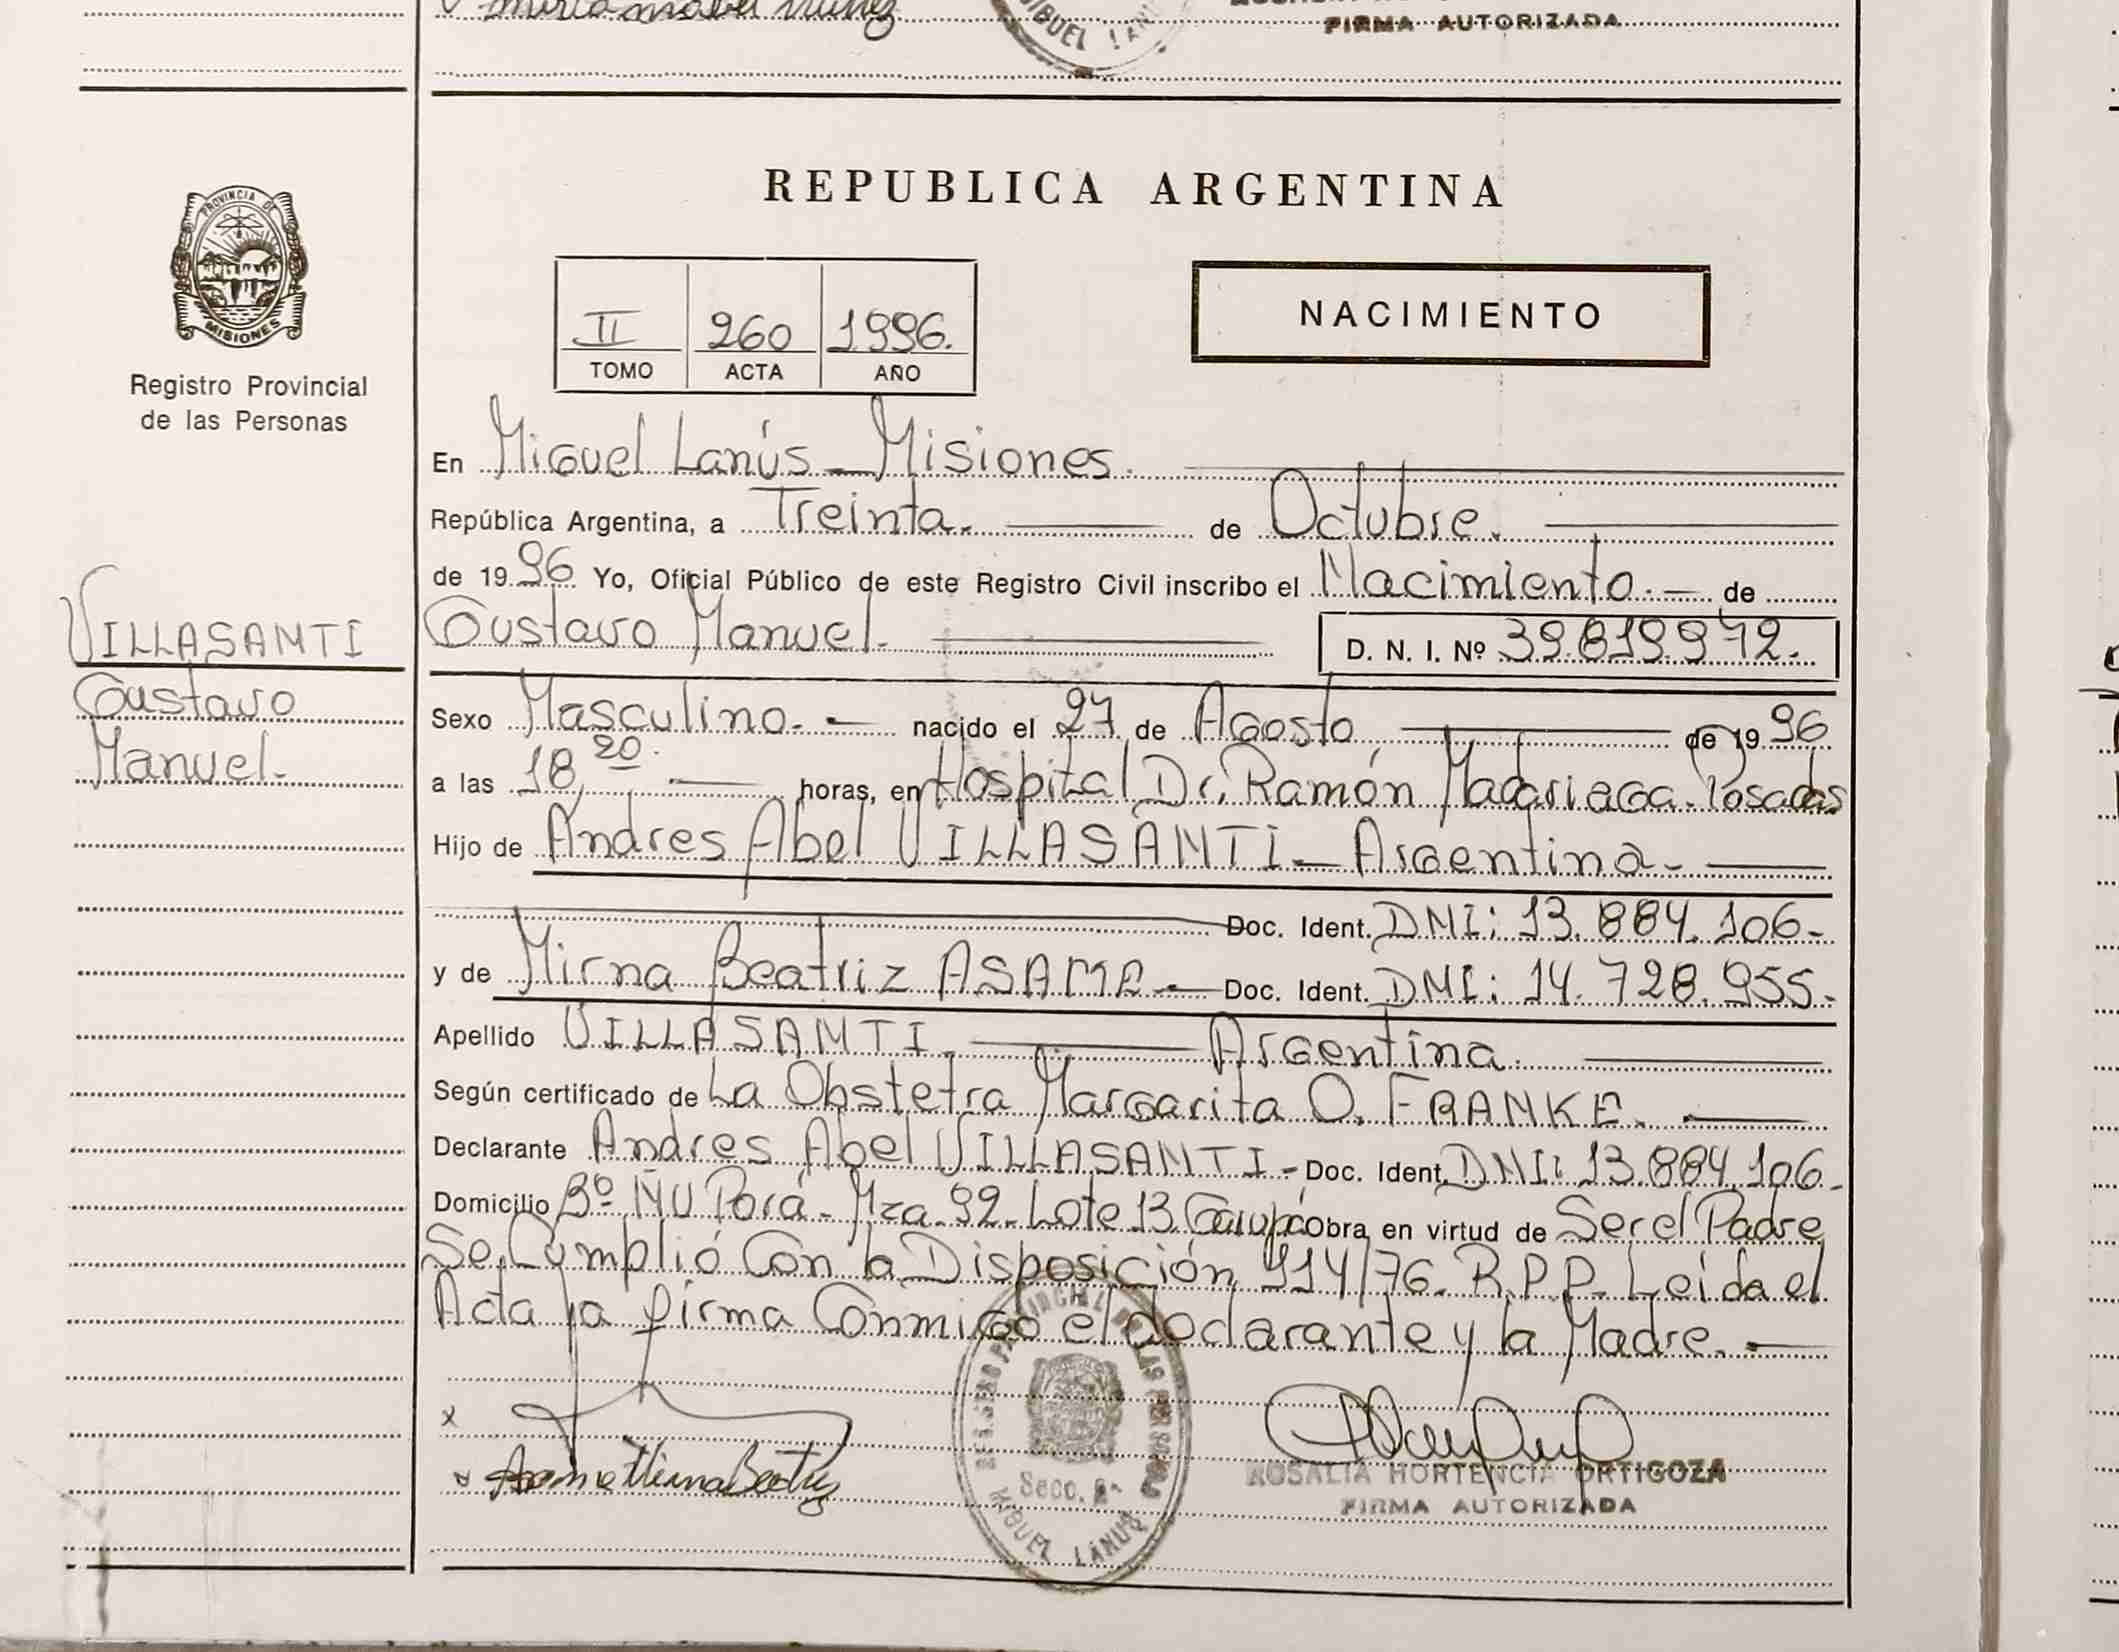 FIRMA AUTORIZADA
PROVINCIA DE
MISIONES
Registro Provincial
de las Personas
VILLASANTI
Gustavo
Manuel.
REPUBLICA ARGENTINA
II 260 1996.
TOMO ACTA AÑO
NACIMIENTO
En Miguel Lanús - Misiones.
República Argentina, a Treinta. de Octubre.
de 1996 Yo, Oficial Público de este Registro Civil inscribo el Nacimiento. - de
Gustavo Manuel. D. N. I. Nº 39.819.972.
Sexo Masculino. - nacido el 27 de Agosto de 1996
a las 18,20. horas, en Hospital Dr. Ramón Madariaga. Posadas
Hijo de Andres Abel VILLASANTI - Argentina -
Doc. Ident. DNI: 13.884.106-
y de Mirna Beatriz ASAME - Doc. Ident. DNI: 14.728.955.
Apellido VILLASANTI. Argentina.
Según certificado de La Obstetra Margarita O. FRANKE. -
Declarante Andres Abel VILLASANTI - Doc. Ident. DNI: 13.884.106.
Domicilio Bº ÑU Porá - Mza. 92 - Lote 13 Garupá obra en virtud de Ser el Padre
Se Cumplió Con la Disposición 914/76. R.P.P. Leída el
Acta la firma Conmigo el declarante y la Madre. -
x
Secc. 2ª
MIGUEL LANUS
ROSALIA HORTENCIA ORTIGOZA
FIRMA AUTORIZADA